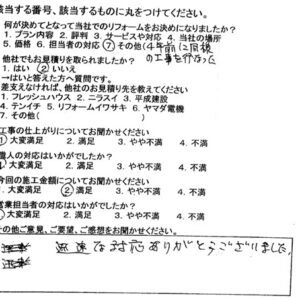 該当する番号、該当するものに丸をつけてください。
何が決めてとなって当社でのリフォームをお決めになりましたか?
1. プラン内容 2. 評判 3. サービスや対応 4. 当社の場所
5. 価格 6. 担当者の対応 ⑦その他(4年前に同様
の工事を行なった
他社でもお見積りを取られましたか?
1. はい ②いいえ
→はいと答えた方へ質問です。
差支えなければ、他社のお見積り先を教えてください
1. フレッシュハウス 2. ニラスイ 3. 平成建設
4. テンイチ 5. リフォームイワサキ 6. ヤマダ電機
7. その他( )
工事の仕上がりについてお聞かせください
①大変満足 2. 満足 3. やや不満 4. 不満
職人の対応はいかがでしたか?
①大変満足 2. 満足 3. やや不満 4. 不満
今回の施工金額についてお聞かせください
1. 大変満足 ②満足 3. やや不満 4. 不満
営業担当者の対応はいかがでしたか?
①大変満足 2. 満足 3. やや不満 4. 不満
その他ご意見、ご要望、ご感想をお聞かせください。
迅速な対応ありがとうございました。